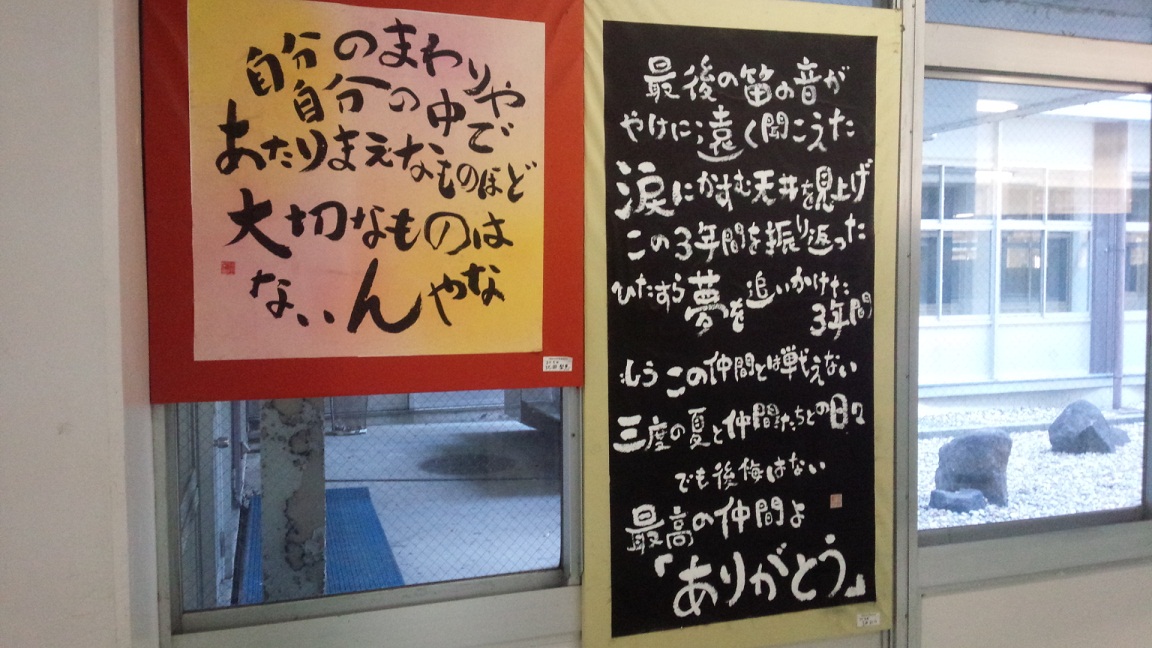 自分のまわりや
自分の中で
あたりまえなものほど
大切なものは
ないんやな
最後の笛の音が
やけに遠く聞こえた
涙にかすむ天井を見上げ
この3年間を振り返った
ひたすら夢を追いかけた
3年間
もうこの仲間とは戦えない
三度の夏と仲間たちとの日々
でも後悔はない
最高の仲間よ
「ありがとう」